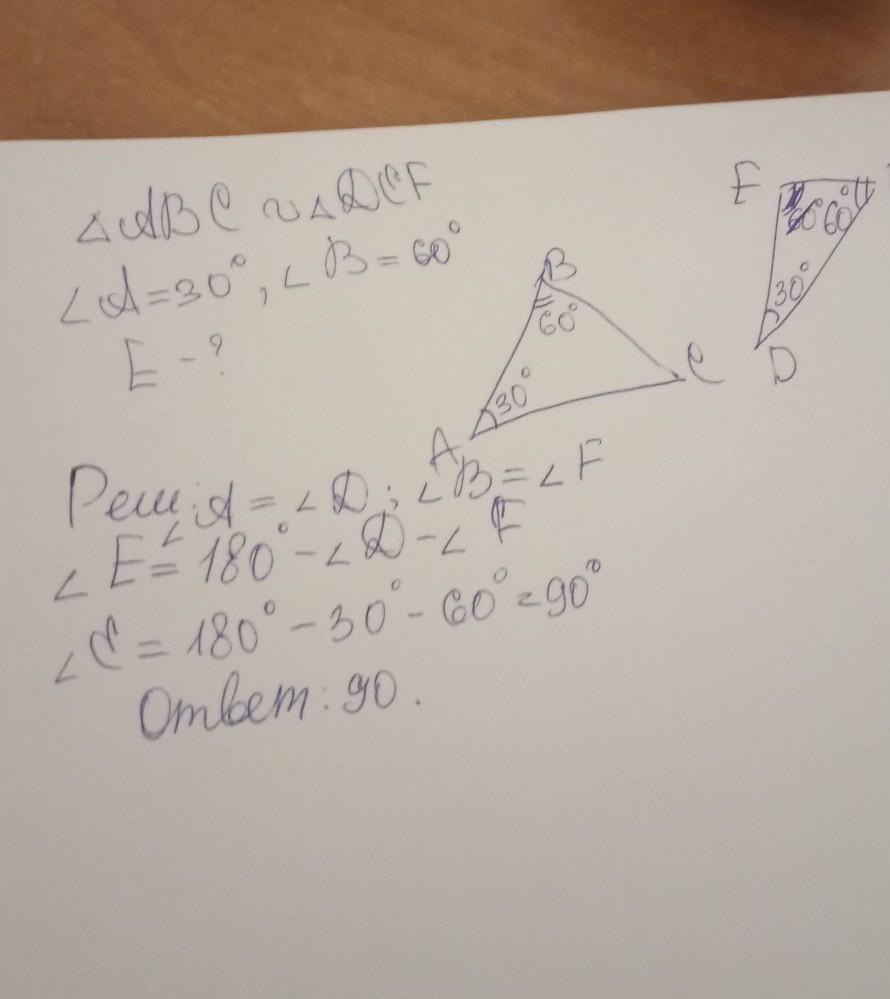 △ABC ∾ △DEF
∠A=30°, ∠B=60°
E - ?
B
60°
30°
A
C
E
60°
30°
D
Реш: ∠A = ∠D; ∠B = ∠F
∠E = 180° - ∠D - ∠F
∠E = 180° - 30° - 60° = 90°
Ответ: 90.